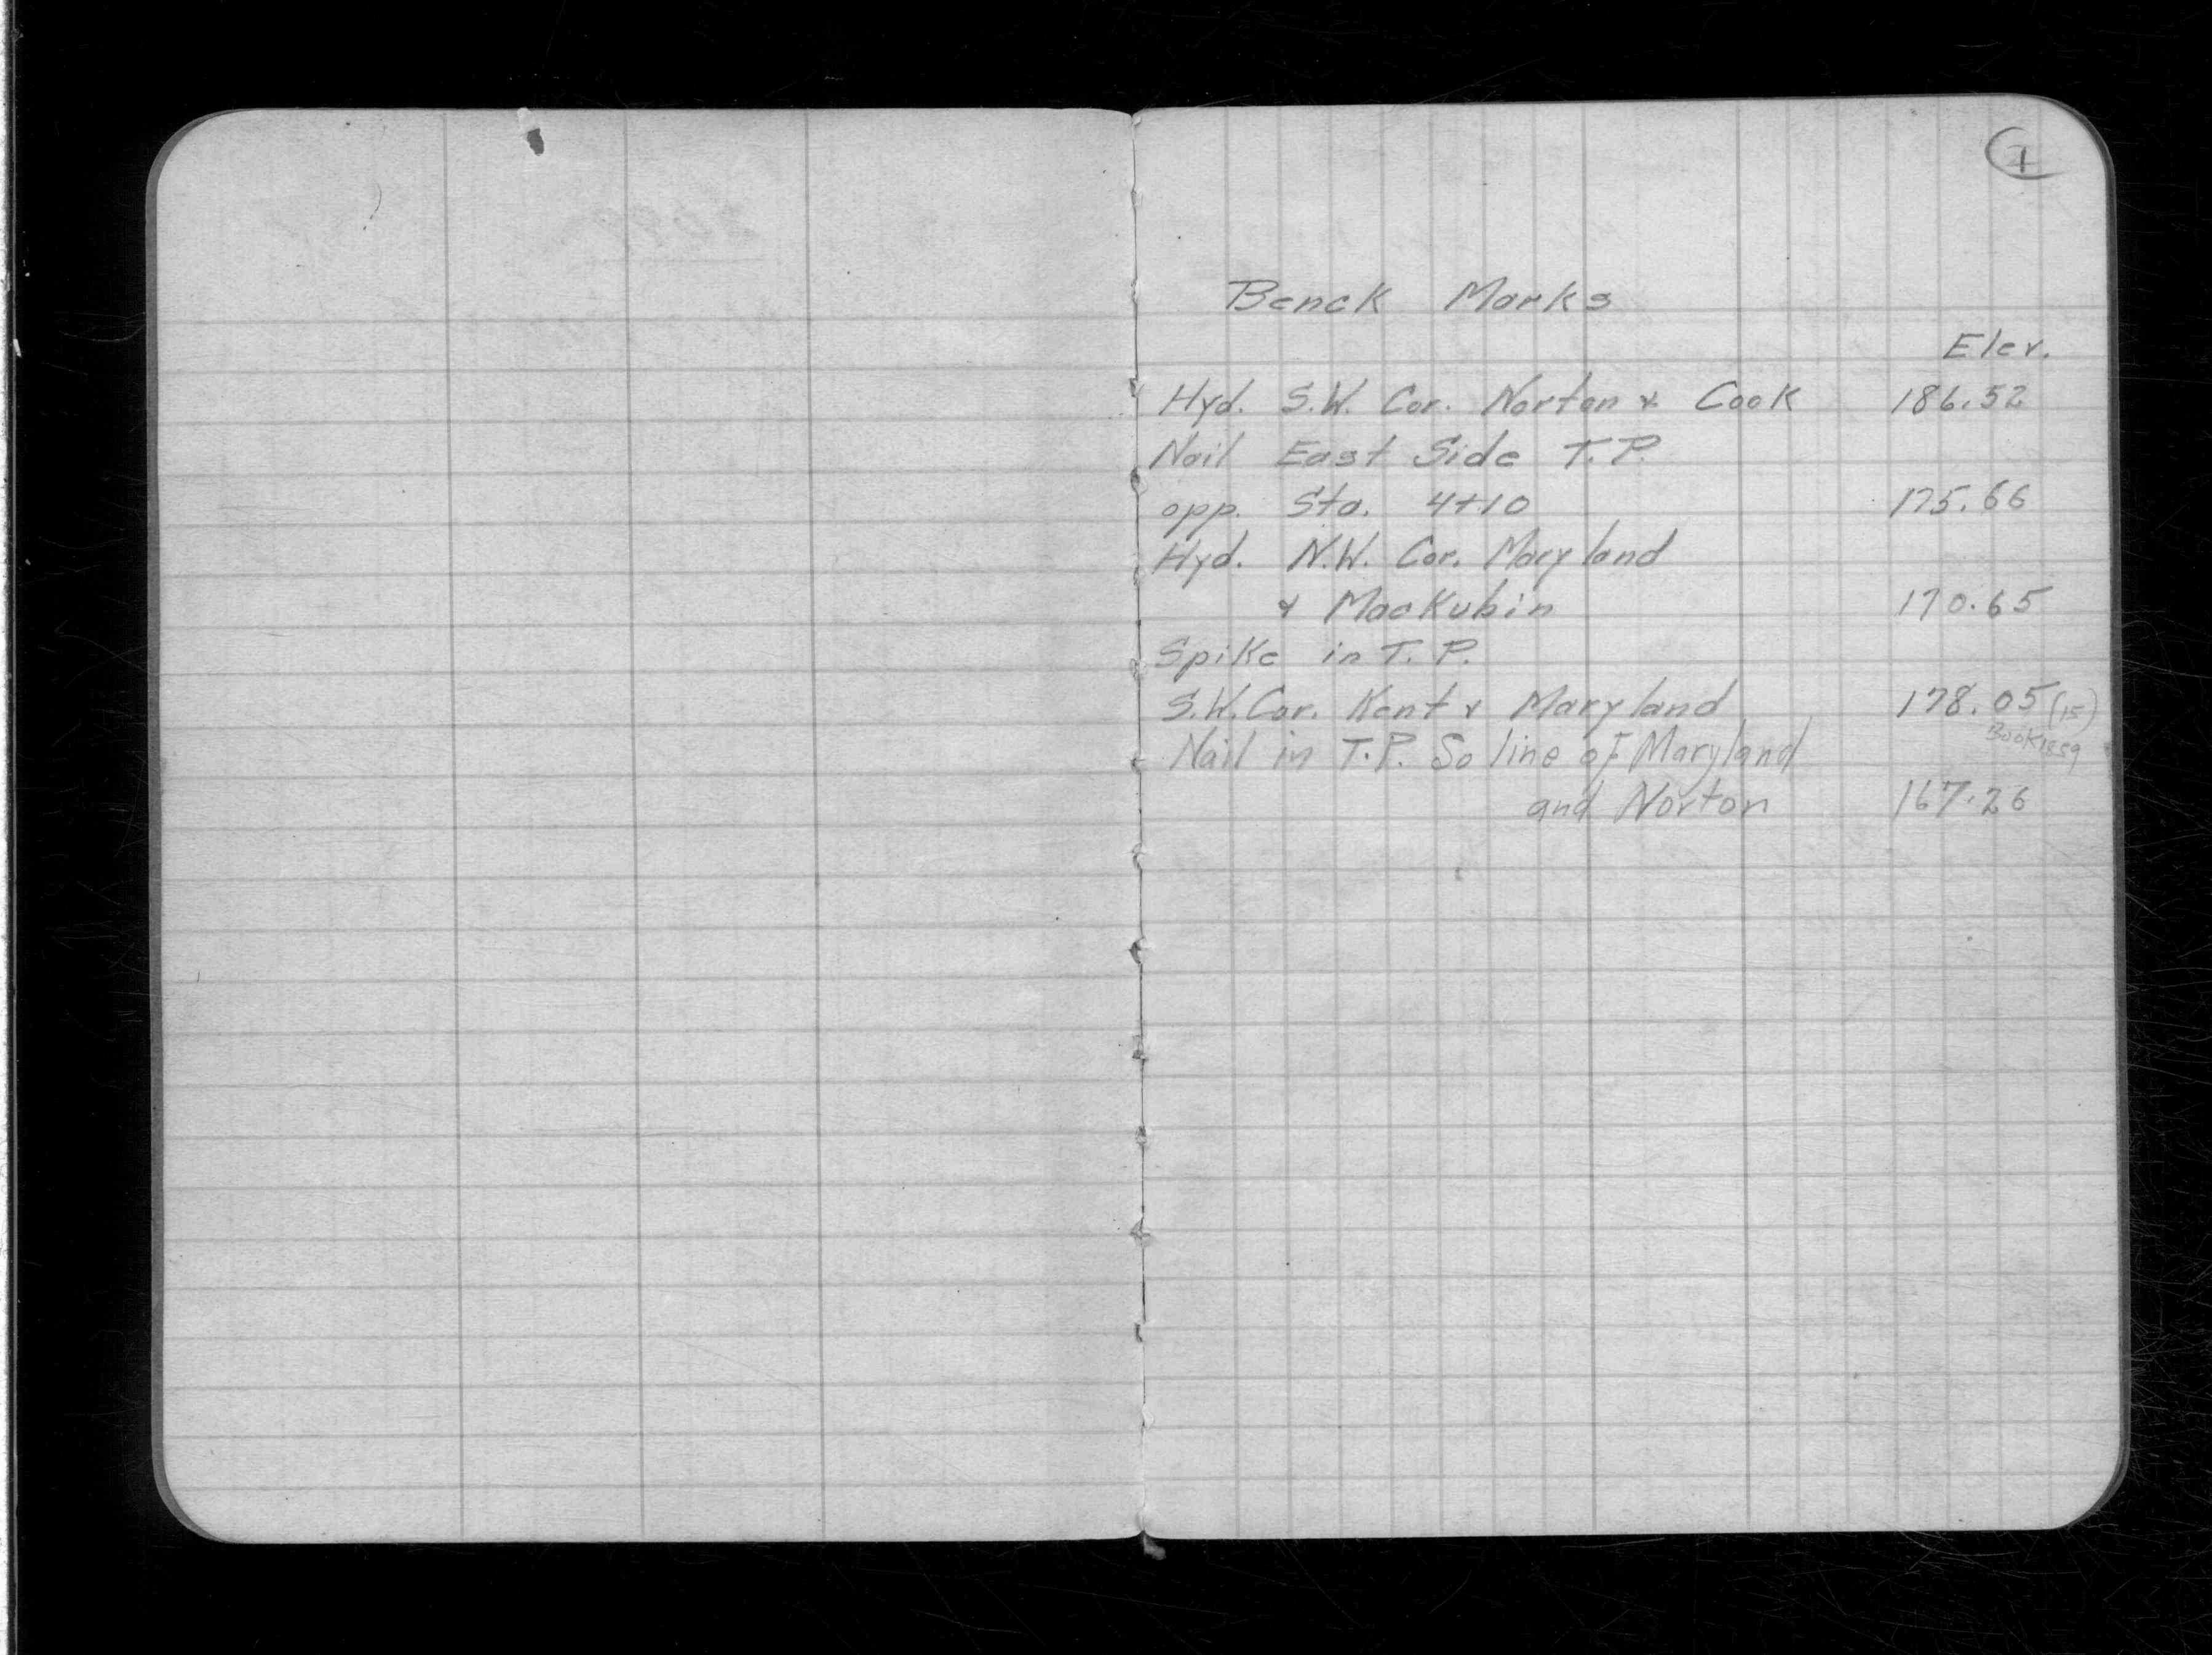 1
Benck Marks
Elev.
Hyd. S.W. Cor. Norton & Cook 186.52
Nail East Side T.P.
opp. Sta. 4+10 175.66
Hyd. N.W. Cor. Maryland
& Mackubin 170.65
Spike in T.P.
S.W. Cor. Kent & Maryland 178.05 (15)
Book 1859
Nail in T.P. So line of Maryland
and Norton 167.26